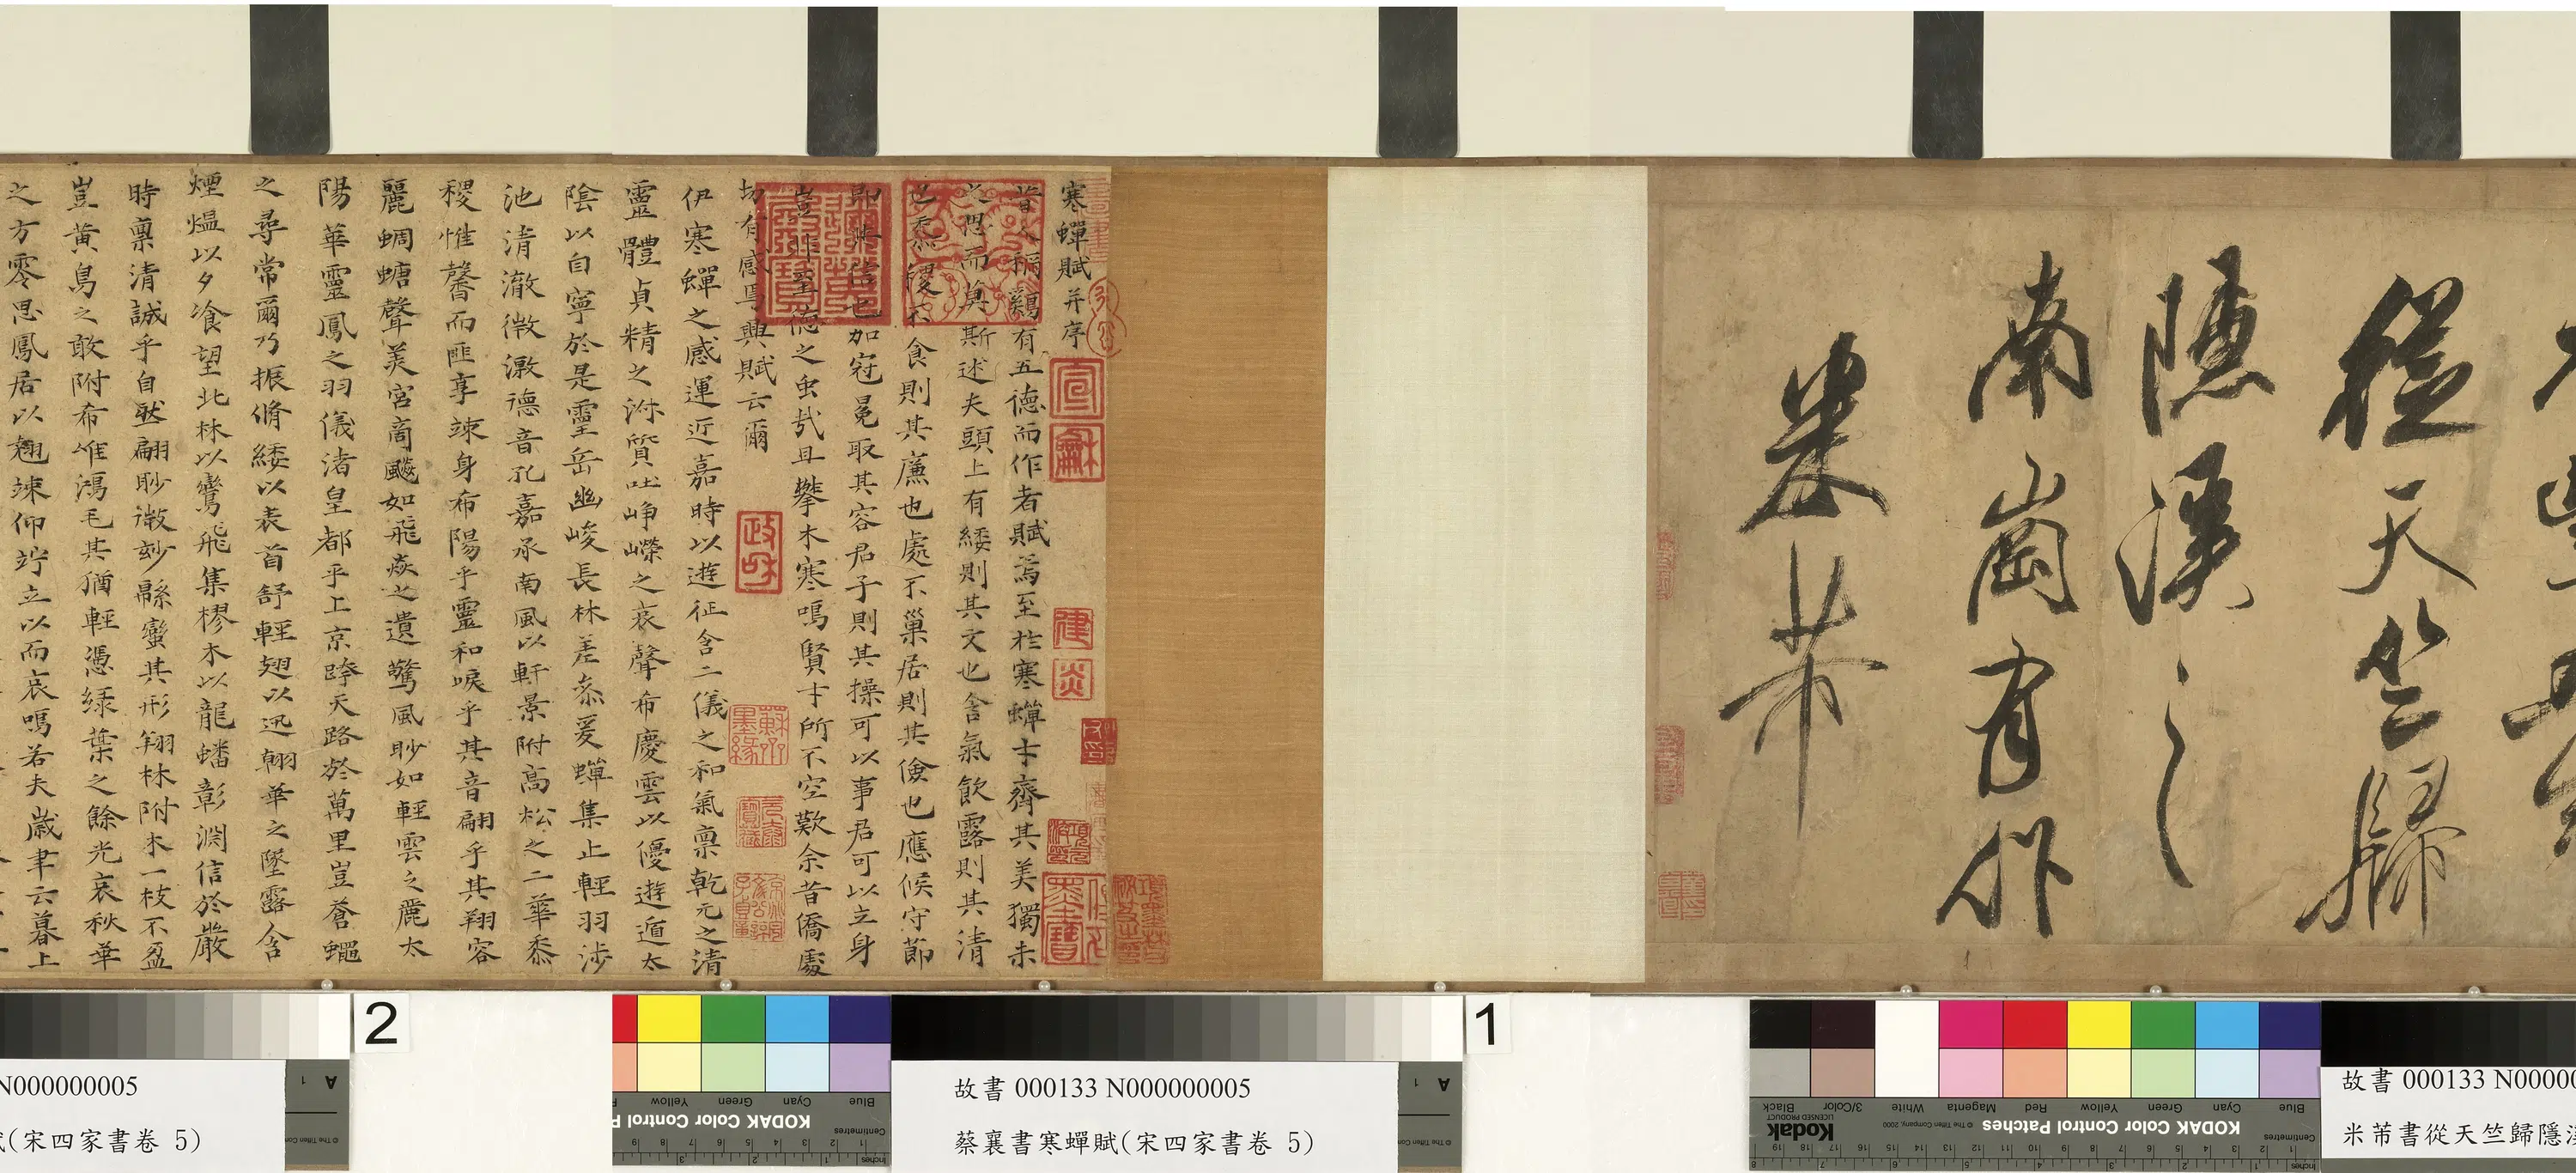 從天竺歸
隱溪之
南崗有作
米芾
宣龢
建炎
寒蟬賦并序
昔人稱鷄有五德而作者賦焉至於寒蟬才齊其美獨未
之思而莫斯述夫頭上有緌則其文也含氣飲露則其清
也黍稷不食則其廉也處不巢居則其儉也應候守節
則其信也加冠冕取其容君子則其操可以事君可以立身
豈非至德之虫哉且攀木寒鳴賢士所不空歎余昔僑處
切有感焉興賦云爾
政和
伊寒蟬之感運近嘉時以遊征含二儀之和氣禀乾元之清
靈體貞精之沵質吐崢嶸之哀聲希慶雲以優遊遁太
陰以自寧於是靈岳幽峻長林差叅爰蟬集止輕羽涉
池清澈微激德音孔嘉承南風以軒景附高松之二華黍
稷惟馨而匪享竦身希陽乎靈和唳乎其音翩乎其翔容
麗蜩螗聲美宮商飈如飛焱之遺驚風眇如輕雲之麗太
陽華靈鳳之羽儀渚皇都乎上京跨天路於萬里豈蒼蠅
之尋常爾乃振脩緌以表首舒輕翅以迅翰華之墜露含
煙熅以夕飡望北林以鸞飛集樛木以龍蟠彰淵信於嚴
時禀清誠乎自然翩眇微妙緜蠻其形翔林附木一枝不盈
豈黃鳥之敢附希唯鴻毛其猶輕憑綠葉之餘光哀秋華
之方零思鳳居以翹竦仰竚立以而哀鳴若夫歲聿云暮上
2
N000000005
(宋四家書卷 5)
1
故書 000133 N000000005
蔡襄書寒蟬賦(宋四家書卷 5)
Blue Cyan Green Yellow
KODAK Color Control P
故書 000133 N00000
米芾書從天竺歸隱溪
Blue Cyan Green Yellow Red Magenta White 3/Color Black
KODAK Color Control Patches
Kodak
LICENSED PRODUCT
© The Tiffen Company, 2000
Centimetres
Inches